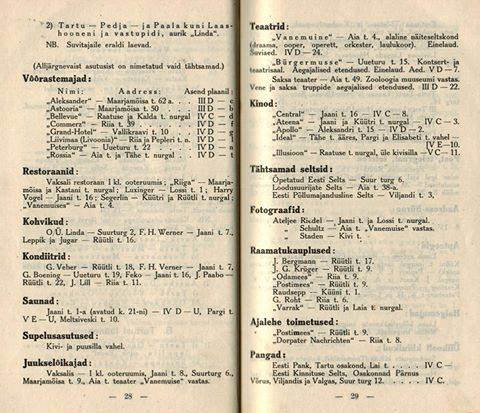 2) Tartu — Pedja — ja Paala kuni Laas-
hooneni ja vastupidi, aurik „Linda“.
NB. Suvitajaile eraldi laevad.
(Alljärgnevaist asutusist on nimetatud vaid tähtsamad.)
Võõrastemajad:
Nimi: Aadress: Asend plaanil:
„Aleksander“ — Maarjamõisa t. 62 a. . . . III D — c
„Astooria“ — Maarjamõisa t. 50 . . . . III D — b
„Bellevue“ — Raatuse ja Kalda t. nurgal IV C — d
„Commerz“ — Riia t. 39 . . . . IV D — f
„Grand-Hotel“ — Vallikraavi t. 10 . . IV D — e
„Liivimaa (Livoonia)“ — Riia ja Pepleri t. n. IV D — l
„Peterburg“ — Uueturu t. 22 . . . IV D — n
„Rossia“ — Aia t. ja Tähe t. nurgal . . IV D — t
Restoraanid:
Vaksali restoraan I kl. ooteruumis; „Riiga“ — Maarja-
mõisa ja Kastani t. nurgal; Luxinger — Lossi t. 1; Harry
Vogel — Jaani t. 16; Segerlin — Küütri ja Rüütli t. nurgal;
„Vanemuises“ — Aia t. 4.
Kohvikud:
O/Ü. Linda — Suurturg 2, F. H. Werner — Jaani t. 7.,
Leppik ja Jugar — Rüütli t. 16.
Kondiitrid:
G. Veher — Rüütli t. 18, F. H. Verner — Jaani t. 7,
G. Boening — Uueturu t. 19, Feko — Jaani t. 16, J. Paabo —
Rüütli t. 22, J. Lill — Riia t. 11.
Saunad:
Jaani t. 1-a (avatud k. 21-ni) — IV D — U, Pargi t.
V E — U, Meltsiveski t. 10.
Supelusasutused:
Kivi- ja puusilla vahel.
Juukselõikajad:
Vaksalis — I kl. ooteruumis, Jaani t. 8., Suurturg 6.,
Maarjamõisa t. 9., Aia t. teaater „Vanemuise“ vastas.
— 28 —
Teaatrid:
„Vanemuine“ — Aia t. 4., alaline näiteseltskond
(draama, ooper, operett, orkester, laulukoor). Einelaud.
Suviaed. IV D — 24.
„Bürgermusse“ — Uueturu t. 15. Kontsert- ja
teatrisaal. Aegajalised etendused. Einelaud. Aed. V D — 7.
Saksa teaater — Aia t. 49. Zooloogia muuseumi vastas.
Vene ja saksa truppide aegajalised etendused. III D — 22.
Kinod:
„Central“ — Jaani t. 16 — IV C — 8.
„Ateena“ — Jaani ja Küütri t. nurgal — IV C — 3.
„Apollo“ — Aleksandri t. 15 — IV D — 2.
„Ideal“ — Tähe t. ääres, Pargi ja Elisabeti t. vahel —
IV E — 10.
„Illusioon“ — Raatuse t. nurgal, üle kivisilla — V C — 11.
Tähtsamad seltsid:
Õpetatud Eesti Selts — Suur turg 6.
Loodusuurijate Selts — Aia t. 38-a.
Eesti Põllumajandusline Selts — Viljandi t. 3,
Fotograafid:
Ateljee Riedel — Jaani t. ja Lossi t. nurgal.
„ Schultz — Aia t. „Vanemuise“ vastas.
„ Staden — Kivi t.
Raamatukauplused:
J. Bergmann — Rüütli t. 17.
J. G. Krüger — Rüütli t. 9.
„Odamees“ — Riia t. 9.
„Postimees“ — Rüütli t. 9.
Raudsepp — Küüni t. 1.
G. Roht — Riia t. 6.
„Varrak“ — Rüütli ja Laia t. nurgal.
Ajalehe toimetused:
„Postimees“ — Rüütli t. 9.
„Dorpater Nachrichten“ — Riia t. 8.
Pangad:
Eesti Pank, Tartu osakond, Lai t. . . . . IV C —
Eesti Kinnituse Selts, Osakonnad Pärnus
Võrus, Viljandis ja Valgas, Suur turg 12. . . . . IV C.
— 29 —